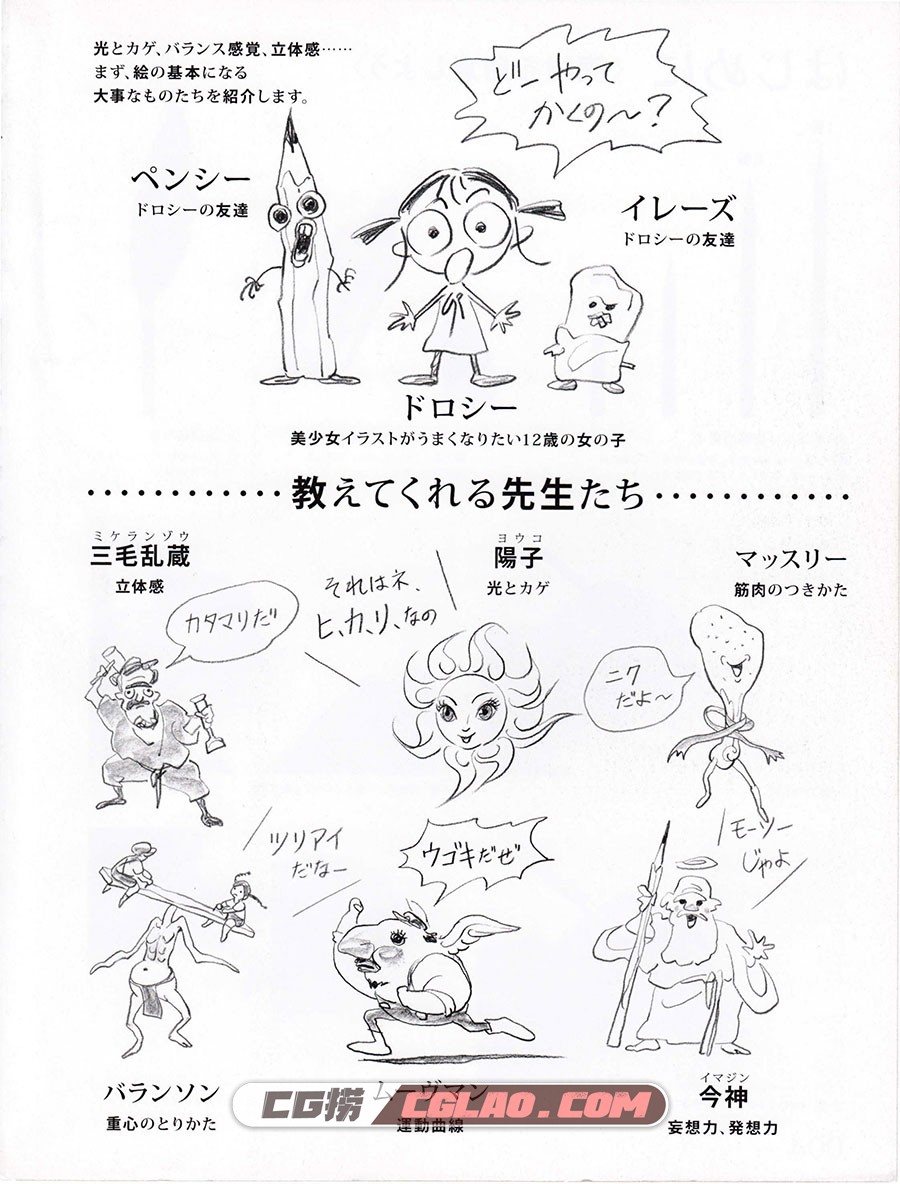 光とカゲ、バランス感覚、立体感……
まず、絵の基本になる
大事なものたちを紹介します。
どーやって
かくの〜?
ペンシー
ドロシーの友達
イレーズ
ドロシーの友達
ドロシー
美少女イラストがうまくなりたい12歳の女の子
教えてくれる先生たち
ミケランゾウ
三毛乱蔵
立体感
カタマリだ
それはネ、
ヒ、カ、リ、なの
ヨウコ
陽子
光とカゲ
マッスリー
筋肉のつきかた
ニク
だよ〜
ツリアイ
だなー
ウゴキだぜ
モーソー
じゃよ
バランソン
重心のとりかた
ムーヴマン
運動曲線
イマジン
今神
妄想力、発想力
CG捞 CGLAO.COM